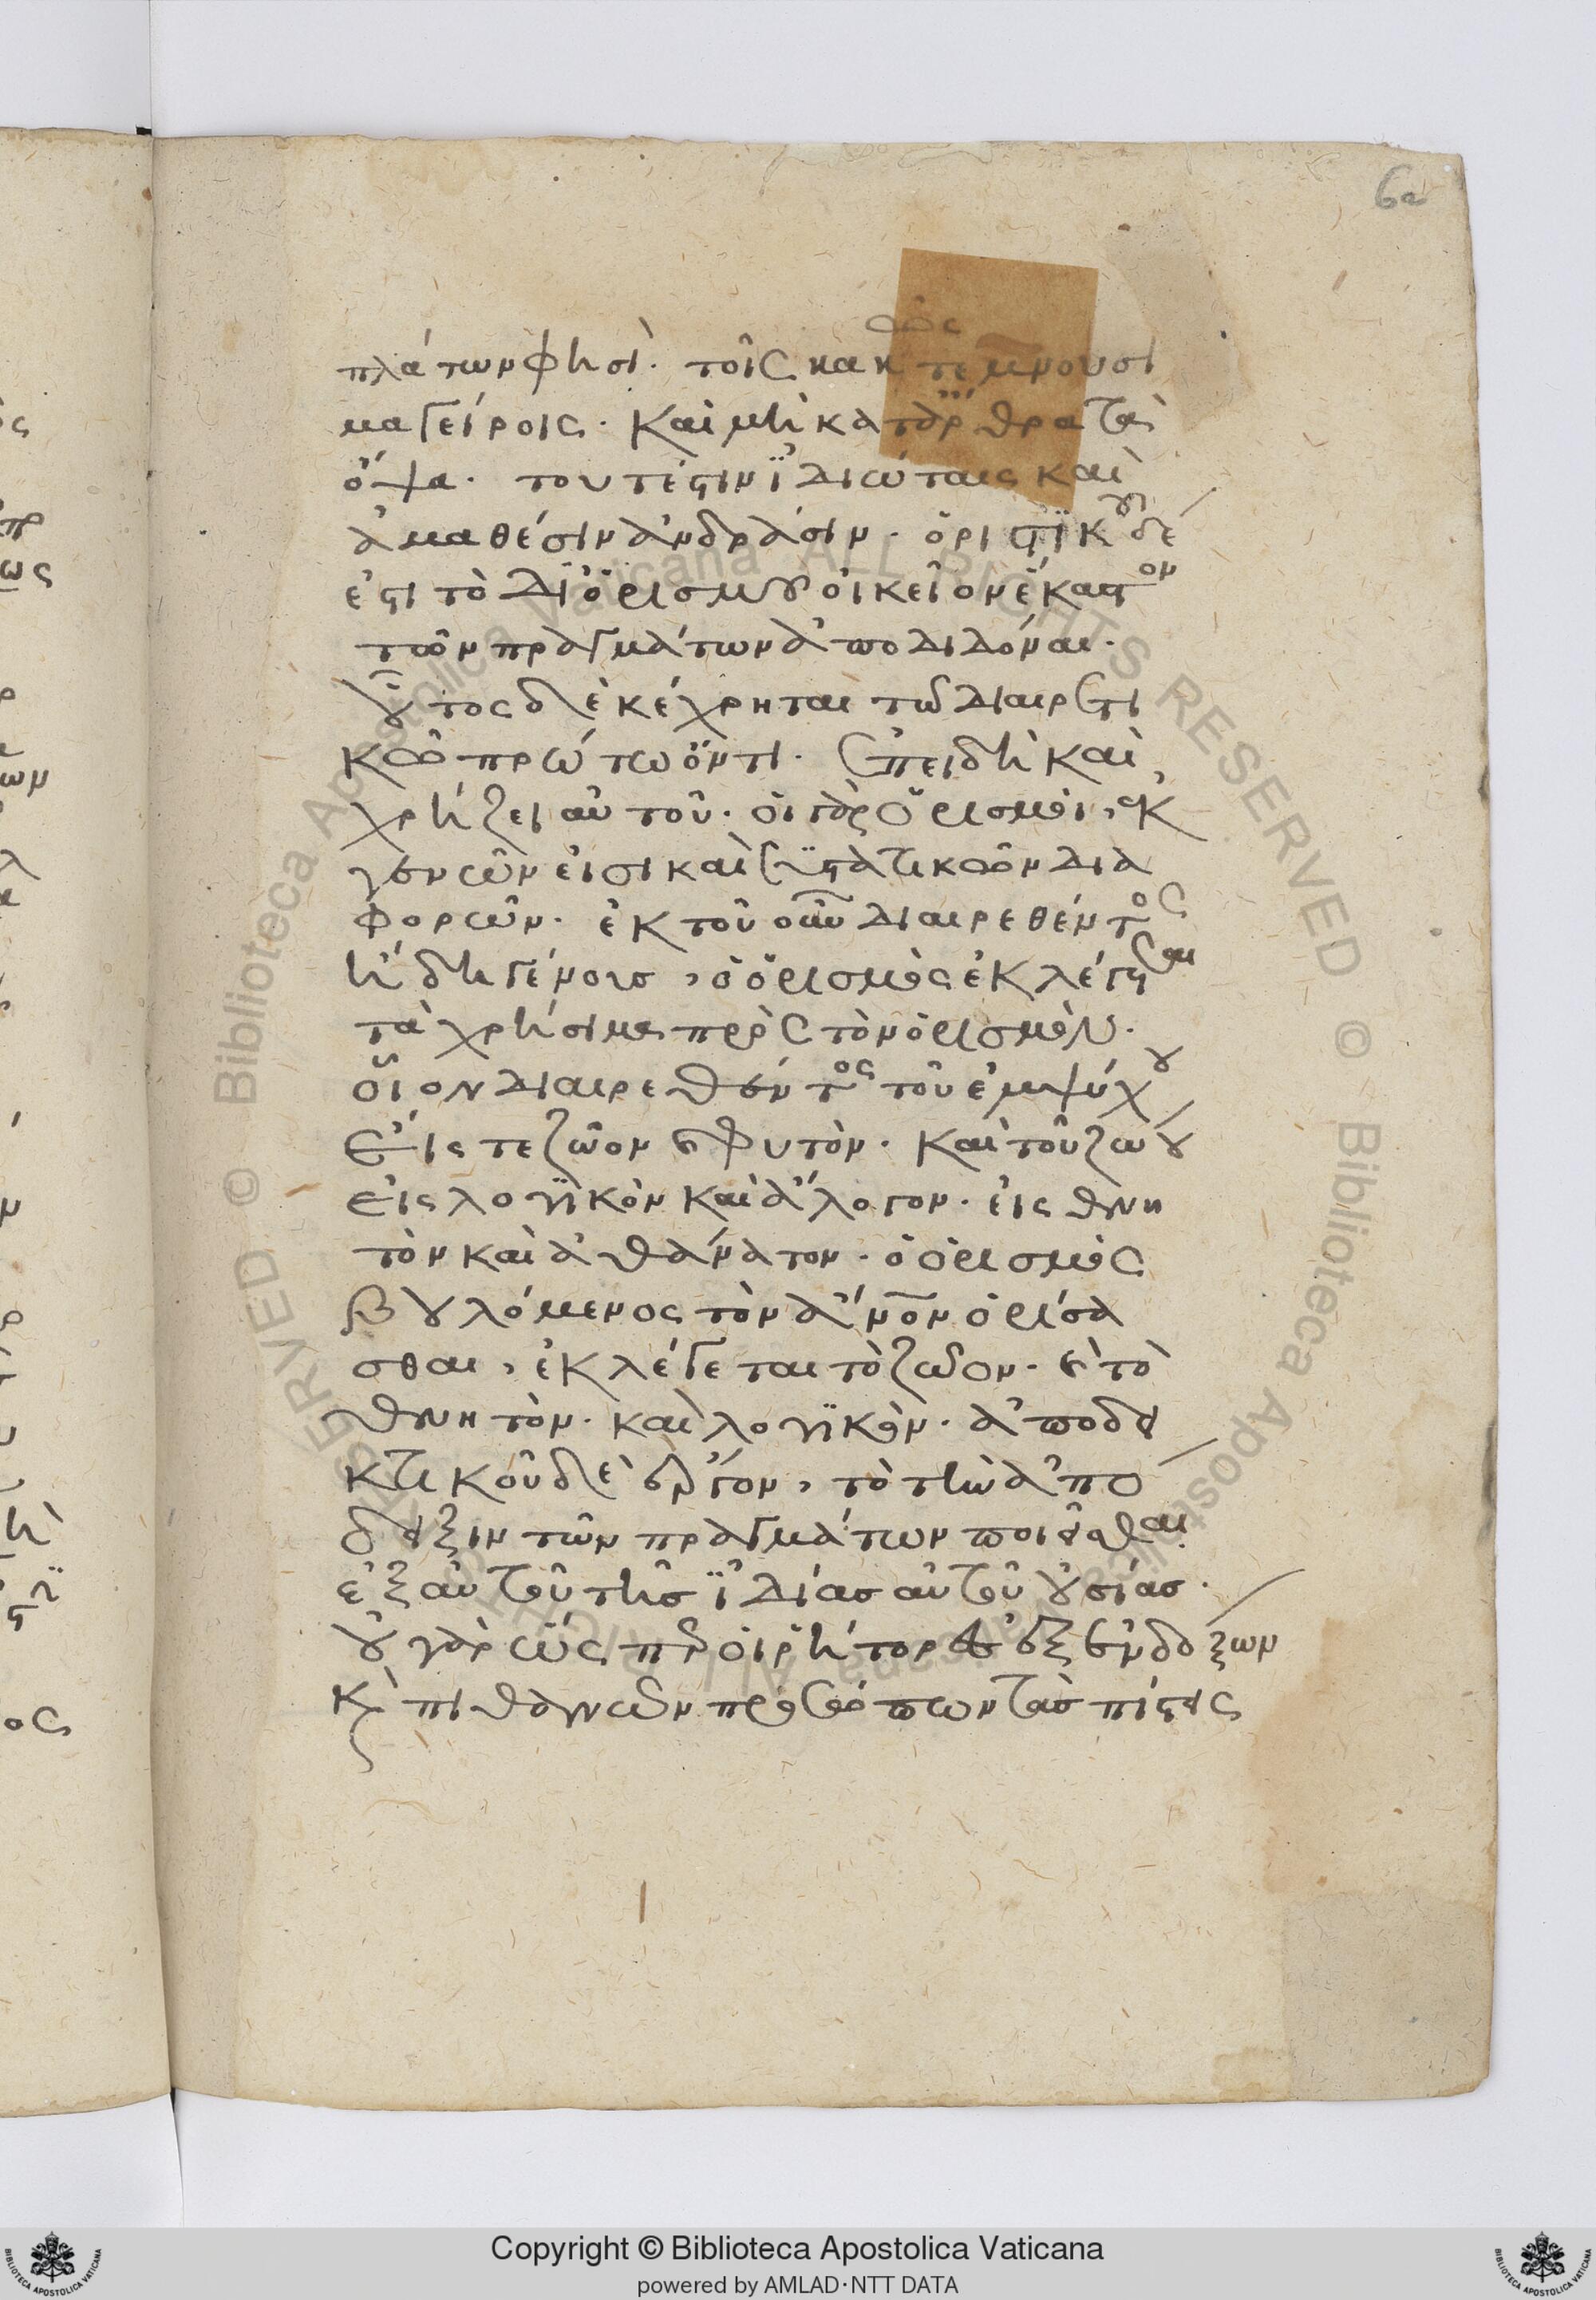 6a
πλάτων φησὶ· τοῖς κακῶς τέμνουσι
μαγείροις· καὶ μὴ κατ' ἄρθρα τὰ
ὄψα· τουτέστιν ἰδιώταις καὶ
ἀμαθέσιν ἀνδράσιν· ὁριστικοῦ δέ
ἐστι τὸ δι' ὁρισμοῦ οἰκείου ἕκαστον
τῶν πραγμάτων ἀποδιδόναι·
οὗτος δὲ κέχρηται τῷ διαιρετι
κῶ πρώτω ὄντι· ἐπειδὴ καὶ
χρήζει αὐτοῦ· οἱ γὰρ ὁρισμοὶ, ἐκ
γενῶν εἰσι καὶ συστατικῶν δια
φορῶν· ἐκ τοῦ οὖν διαιρεθέντος
ἤδη γένους, ὁ ὁρισμὸς ἐκλέγεται
τὰ χρήσιμα πρὸς τὸν ὁρισμόν·
οἷον διαιρεθέντος τοῦ ἐμψύχου
εἴς τε ζῶον καὶ φυτὸν· καὶ τοῦ ζώου
εἰς λογικὸν καὶ ἄλογον· εἰς θνη
τὸν καὶ ἀθάνατον· ὁ ὁρισμὸς
βουλόμενος τὸν ἄνον ὁρίσα
σθαι, ἐκλέγεται τὸ ζῶον· καὶ τὸ
θνητὸν· καὶ λογικὸν· ἀποδει
κτικοῦ δὲ ἔργον, τὸ τὴν ἀπό
δειξιν τῶν πραγμάτων ποιεῖσθαι·
ἐξ αὐτοῦ τῆς ἰδίας αὐτοῦ οὐσίας·
οὐ γὰρ ὡς περ οἱ ῥήτορες ἐξ ἐνδόξων
καὶ πιθανῶν προσώπων τὰς πίστεις
Copyright © Biblioteca Apostolica Vaticana
powered by AMLAD·NTT DATA